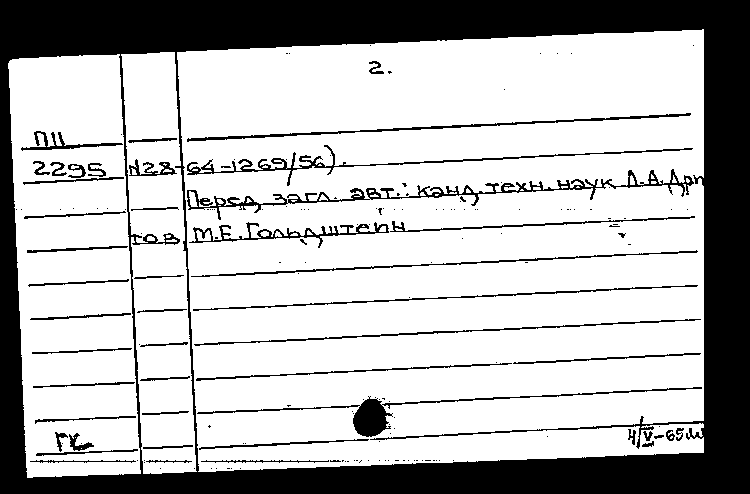 2.
ПИ
2295 N28-64-1269/56).
Перед загл. авт.: канд. техн. наук Л.А.Арп
тов, М.Е.Гольдштейн
ГК
4/V-65